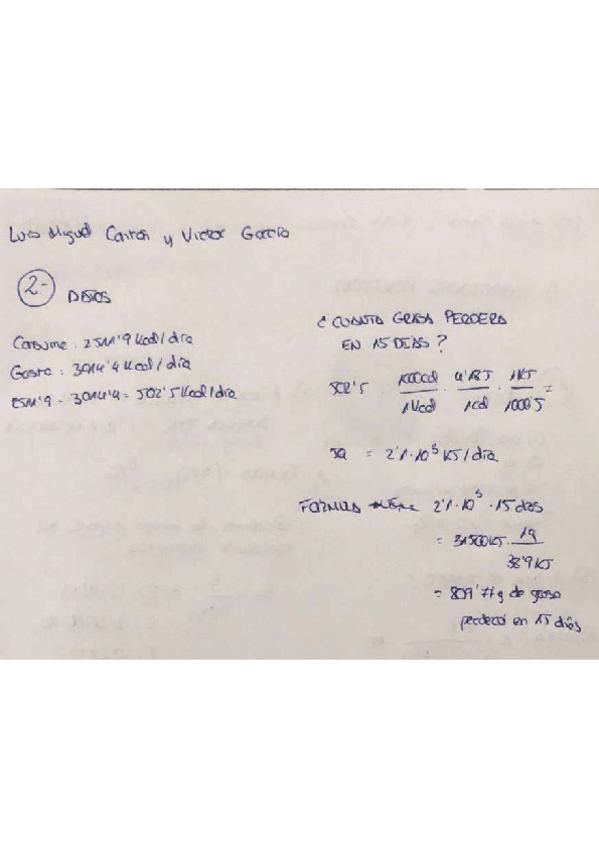 Luis Miguel y Victor García
2-
DATOS
Consume: 2511'9 Kcal/dia
Gasto: 3014'4 Kcal/dia
2511'9 - 3014'4 = 502'5 Kcal/dia
¿CUANTA GRASA PERDERA
EN 15 DIAS?
502'5 · 1000cal/1Kcal · 4'18J/1cal · 1KJ/1000J =
= 2'1·10³ KJ/dia
FORMULA 2'1·10³ · 15 dias
= 31500KJ · 1g/38'9KJ
= 809'77g de grasa
perderá en 15 días